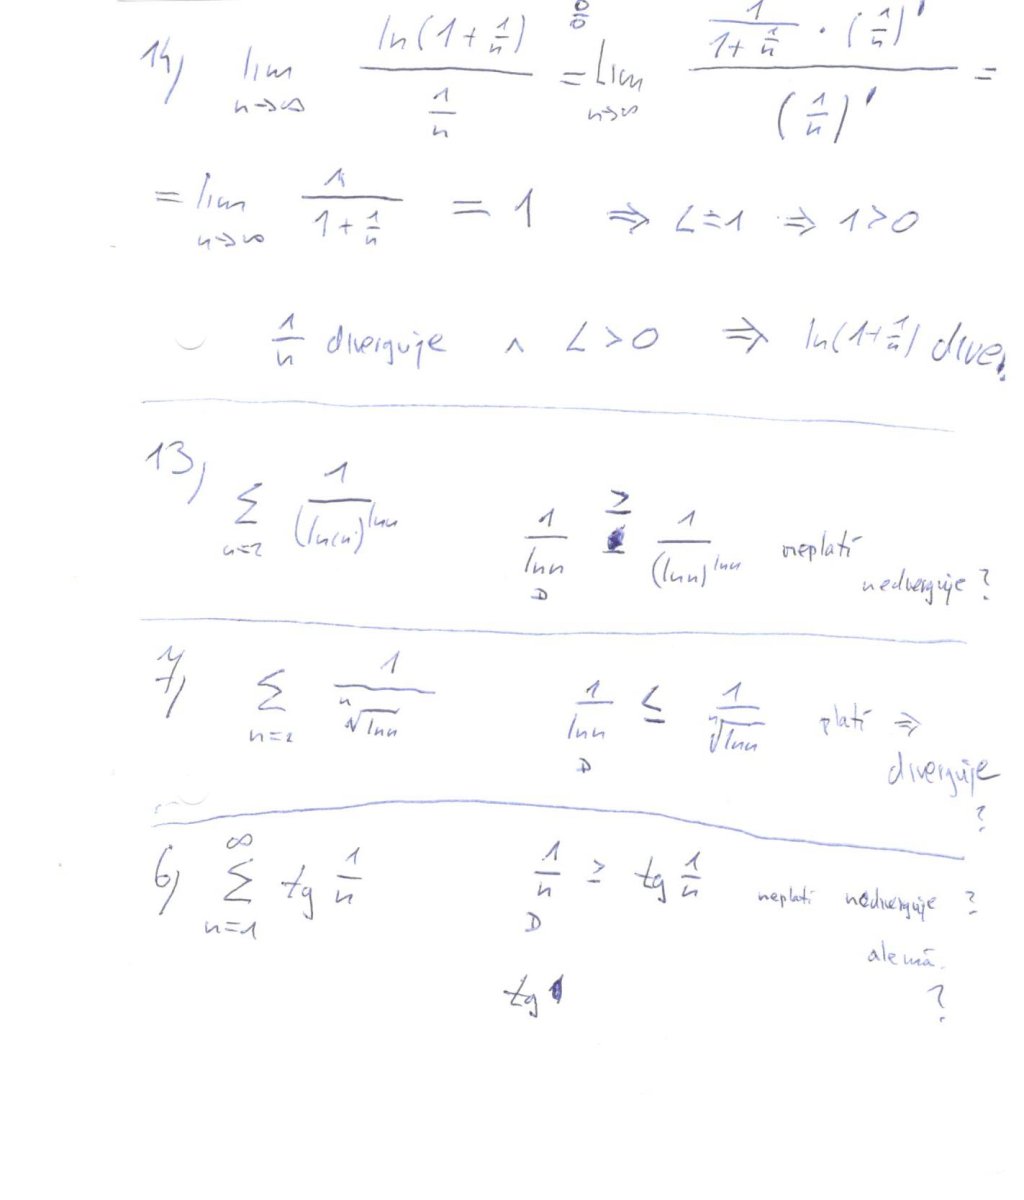 14) lim n→∞ ln(1+1/n) / (1/n) = 0/0 Lim n→∞ (1/(1+1/n) · (1/n)') / (1/n)' =
= lim n→∞ 1/(1+1/n) = 1 ⇒ L=1 ⇒ 1>0
1/n diverguje ∧ L>0 ⇒ ln(1+1/n) diver.
13) Σ n=2 1/(ln(n))^lnn 1/lnn D ≥ 1/(lnn)^lnn neplatí
nediverguje ?
7) Σ n=2 1/ⁿ√lnn 1/lnn D ≤ 1/ⁿ√lnn platí ⇒
diverguje
?
6) ∞ Σ n=1 tg 1/n 1/n D ≥ tg 1/n neplatí nediverguje ?
ale má.
tg ?